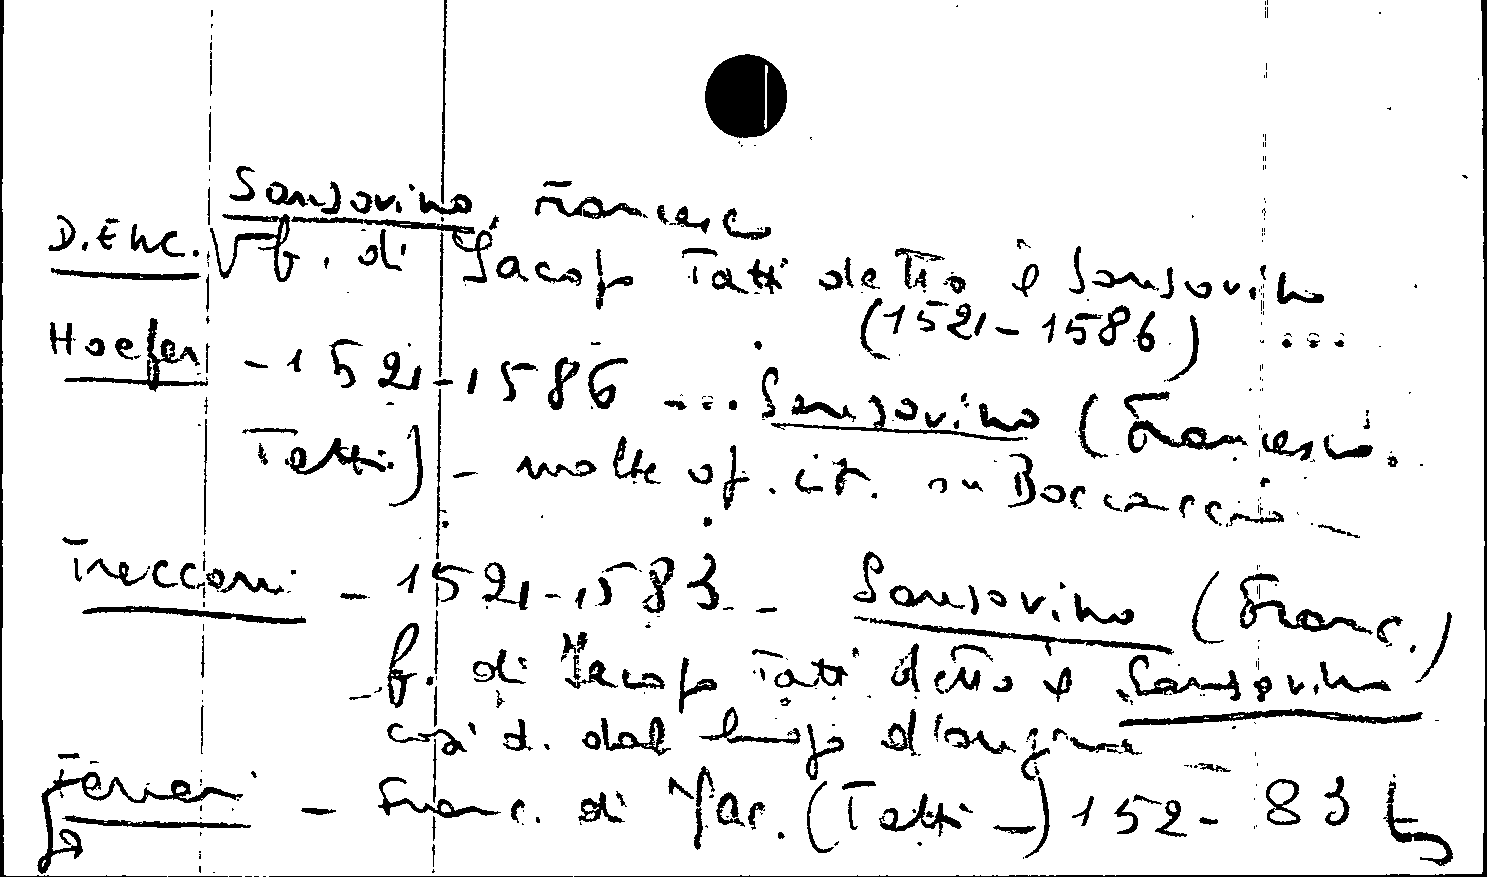 Sansovino, Francesco
D.Enc. √ f. di Jacopo Tatti detto il Sansovino
(1521-1586) ...
Hoefer - 1521-1586 ... Sansovino (Francesco
Tatti) - molte op. cit. su Boccaccio -
Treccani - 1521-1583 - Sansovino (Franc.)
f. di Jacopo Tatti detto il Sansovino
così d. dal luogo d'origine -
Ferrari - Franc. di Jac. (Tatti -) 152 - 83